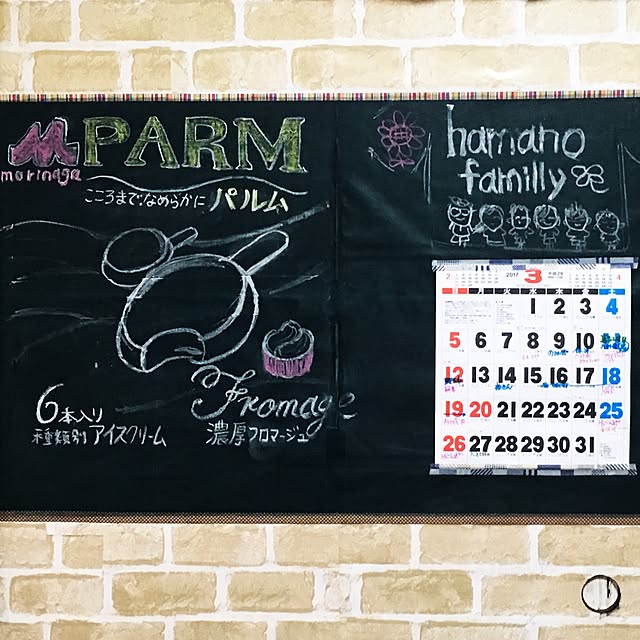 M PARM
morinaga
こころまでなめらかに パルム
Fromage
濃厚フロマージュ
6本入り
種類別 アイスクリーム
hamano
familly
2 2017 3 4
1 2 3 4
5 6 7 8 9 10
12 13 14 15 16 17 18
19 20 21 22 23 24 25
26 27 28 29 30 31